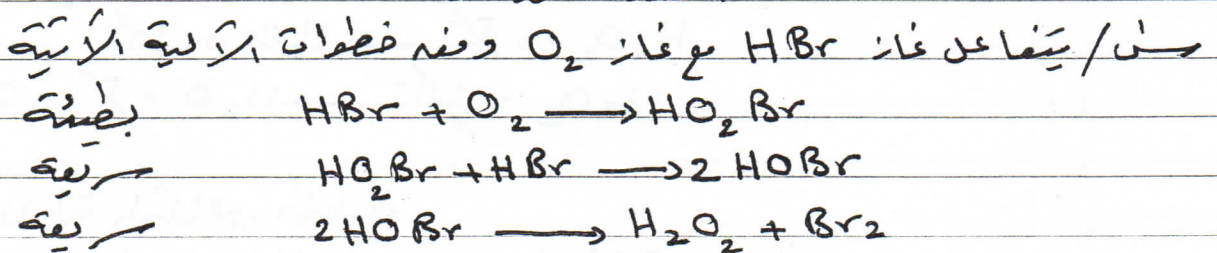 س/ يتفاعل غاز HBr مع غاز O₂ وفق خطوات الآلية الآتية
HBr + O₂ ⟶ HO₂Br بطيئة
HO₂Br + HBr ⟶ 2 HOBr سريعة
2HOBr ⟶ H₂O₂ + Br₂ سريعة